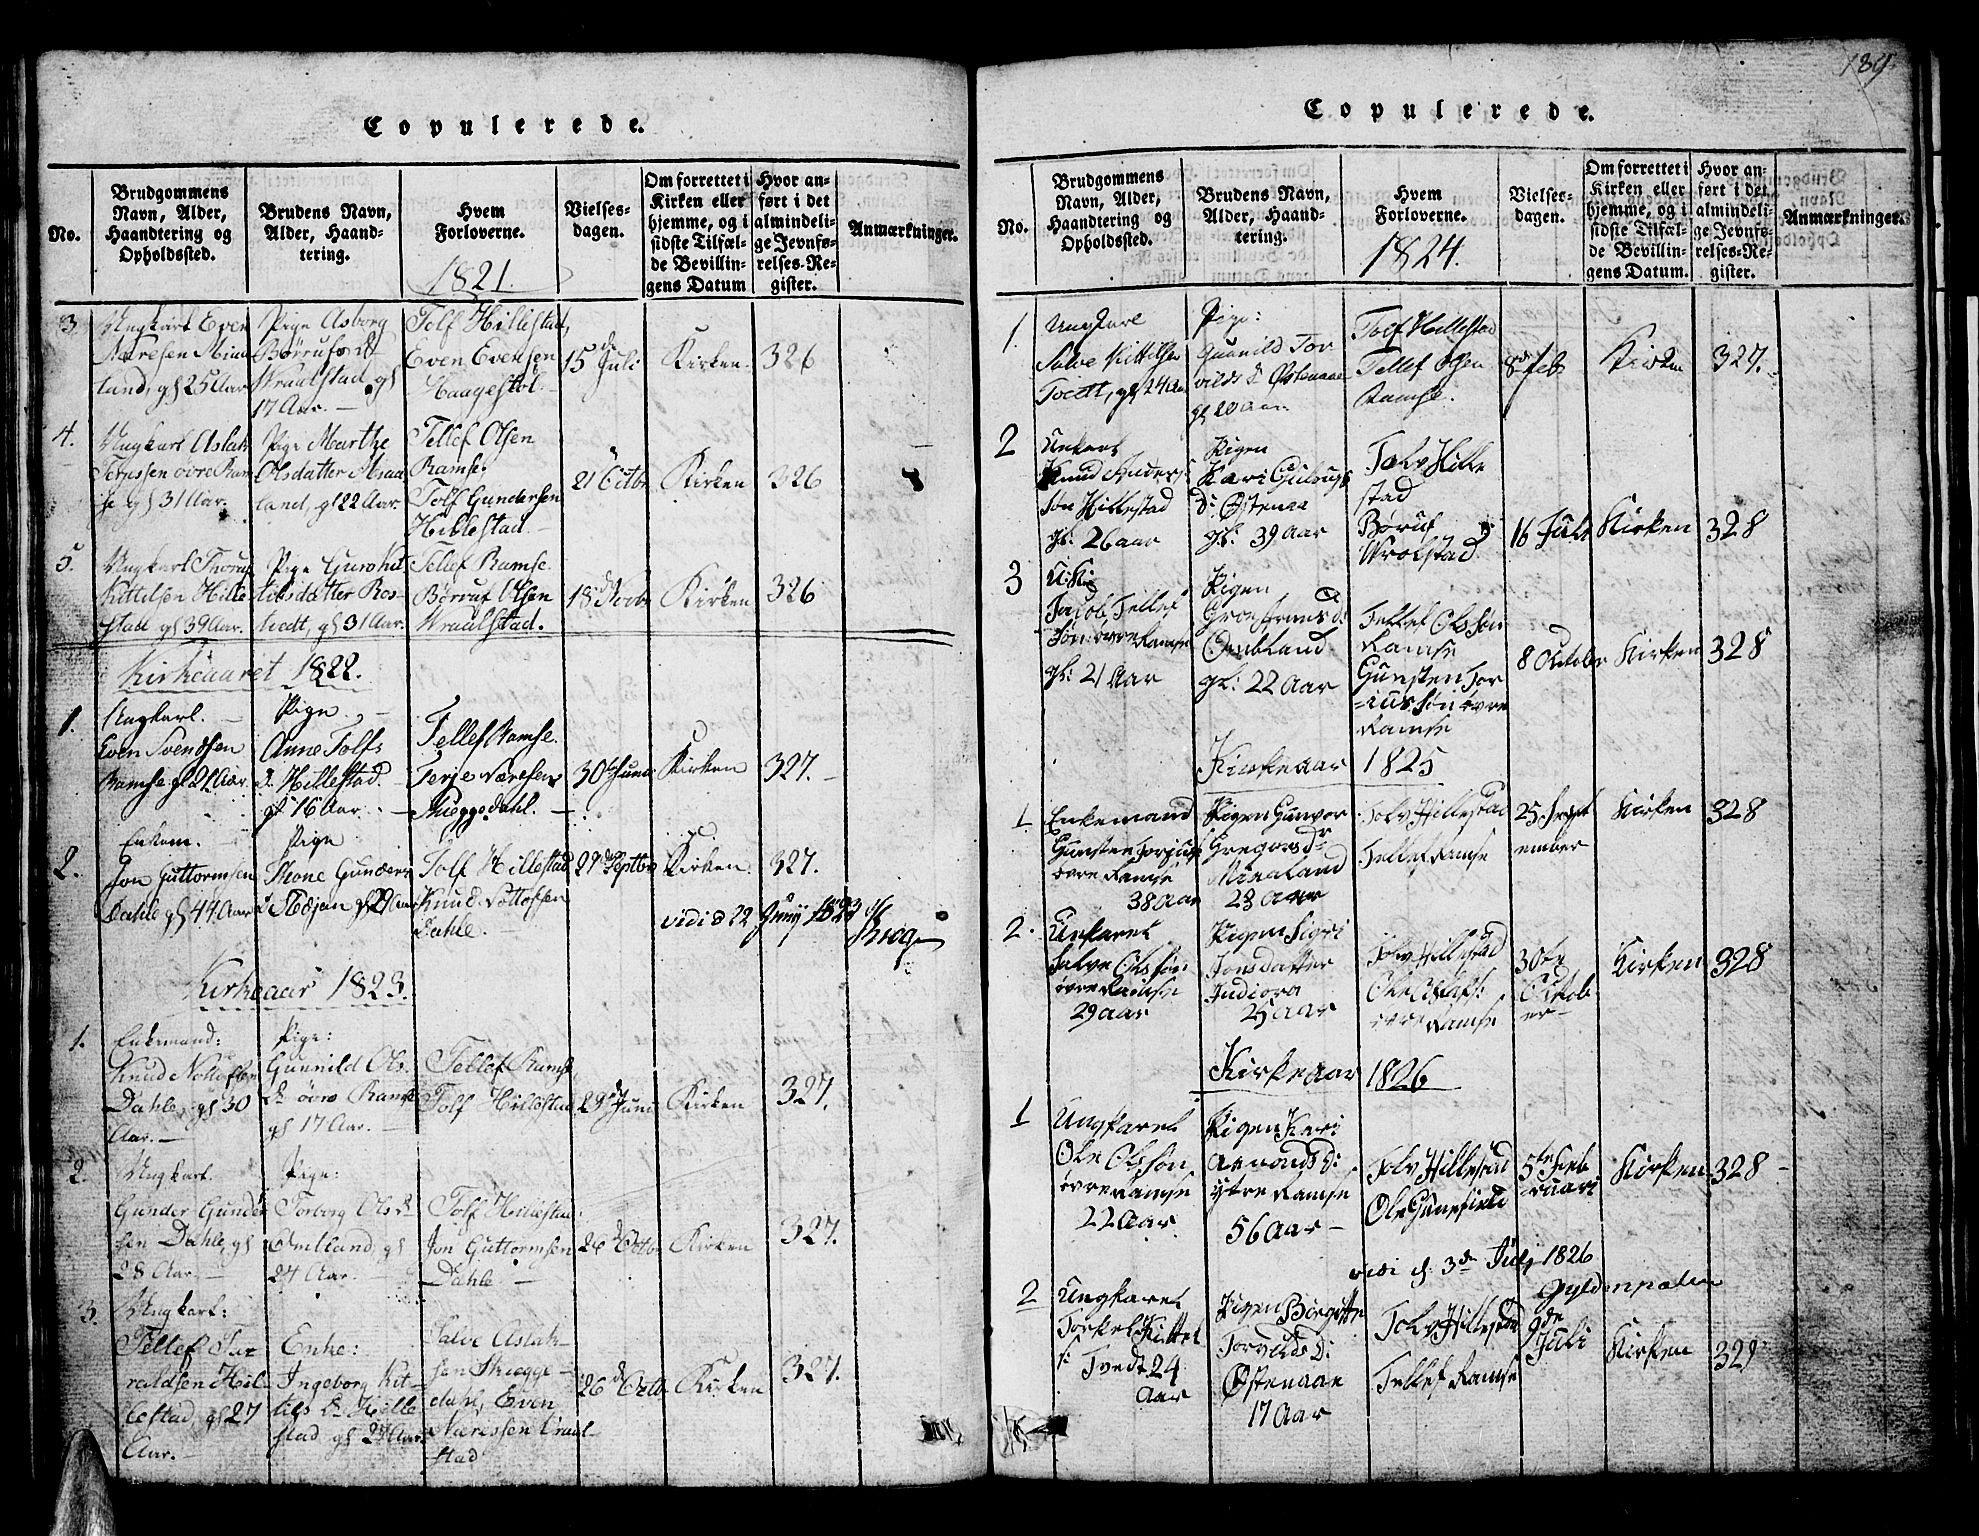 Copulerede.
No.
Brudgommens
Navn, Alder,
Haandtering og
Opholdssted.
Brudens Navn,
Alder, Haand-
tering.
Hvem
Forloverne.
1821.
Vielses-
dagen.
Om forrettet i
Kirken eller
hjemme, og i
sidste Tilfæl-
de Bevillin-
gens Datum
Hvor an-
ført i det
almindeli-
ge Jevnfø-
relses-Re-
gister.
Anmærkninger.
3
Ungkarl Even
land, gl 25 Aar
Pige Asborg
17 Aar.
Tolf Hillestad,
Even Evensen
Haagestol
15 de Juli
Kirken.
326
4.
Ungkarl Aslak
Terjessen øvre Ram
se gl 31 Aar.
Pige Marthe
Olsdatter
land, gl 22 Aar.
Tellef Olsen
Ramse.
Tolf Gundersen
Hillestad
21 Octbr
Kirken
326
5.
Ungkarl
Kittilsen Hille
stad gl 39 Aar.
Pige Guro Kit
tilsdatter Ros
gl 31 Aar.
Tellef Ramse.
Børruf Olsen
Vraalstad.
18 Novbr
Kirken
326
Kirkeaaret 1822.
1.
Ungkarl.
Even Svendsen
Ramse gl 21 Aar.
Pige.
Anne Tolfs
D. Hillestad.
gl 16 Aar.
Tellef Ramse.
Terje Næresen
Skieggedahl.
30 Juni
Kirken
327.
2.
Enkem.
Jon Guttormsen
Dahle gl 44 Aar
Pige
Thone Gunders
Tolf Hillestad
Knud
Dahle.
29 Septbr
Kirken.
327.
vidi d 22 Juny 1823
Kirkeaar 1823.
1.
Enkemand:
Knud
Dahle, gl 30
Aar.
Pige:
Gunnild Ols
D. øvre Ramse
gl 17 Aar.
Tellef Ramse
Tolf Hillestad
29 Juni
Kirken
327.
2.
Ungkarl.
Gunder Gunder
sen Dahle, gl
28 Aar.
Pige:
Torborg Ols D
Omland, gl
27 Aar.
Tolf Hillestad.
Jon Guttormsen
Dahle.
26 Octbr
Kirken
327.
3.
Ungkarl:
Tellef Tar
raldsen Hil
lestad, gl 27
Aar.
Enke:
Ingeborg Kit
tils D. Hille
stad gl 27 Aar.
Salve Aslak
sen Skiegge
dahl, Even
Næressen Vraal
stad
26 Octb.
Kirken
327.
189
Copulerede.
No.
Brudgommens
Navn, Alder,
Haandtering og
Opholdssted.
Brudens Navn,
Alder, Haand-
tering.
Hvem
Forloverne.
1824.
Vielses-
dagen.
Om forrettet i
Kirken eller
hjemme, og i
sidste Tilfæl-
de Bevillin-
gens Datum.
Hvor an-
ført i det
almindeli-
ge Jevnfø-
relses-Re-
gister.
Anmærkninger.
1.
Ungkarl
Salve Kittilsen
gl 24 Aar
Pige:
Gunnild Tor
vilds D Østenaae
gl 20 Aar.
Tolf Hillestad
Tellef Olsen
Ramse.
8de Feb
Kirken
327.
2
Knud Anders
søn Hillestad
gl: 26 aar
Pigen
Kari
D: Østenaae
gl: 39 Aar
Tolv Hille
stad
Børuf
Wrolstad
16 Juli
Kirken
328
3
Jacob Tellef
søn øvre Ramse
gl: 21 Aar
Pigen
Ombland
gl: 22 Aar
Tellef Olssøn
Ramse
Gunsten Tor
øvre
Ramse
8 October
Kirken
328
Kirkeaar 1825
1.
Enkemand
Gunsten
øvre Ramse
38 Aar
Pigen Gunvor
Gregorsd
23 Aar
Tolv Hillestad
Tellef Ramse
25 Sept
ember
Kirken
328
2.
Ungkarl
Salve Olssøn
øvre Ramse
29 aar
Pigen Sigri
Jonsdatter
25 aar
Tolv Hillestad
Ole
øvre Ramse
30te
Octob
er
Kirken
328
Kirkeaar 1826
1
Ungkarl
Ole Olssøn
øvre Ramse
22 Aar
Pigen Kari
ytre Ramse
56 Aar
Tolv Hillestad
Ole
5te Feb
ruari
Kirken
328
vidi d. 3de July 1826
Gyldenpalm
2
Ungkarl
Torkel Kittel
s: Tvedt 24
Aar
Pigen Birgitte
Torvilds D:
Østenaae
17 Aar
Tolv Hillestad
Tellef Ramse
9de
Juli
Kirken
329